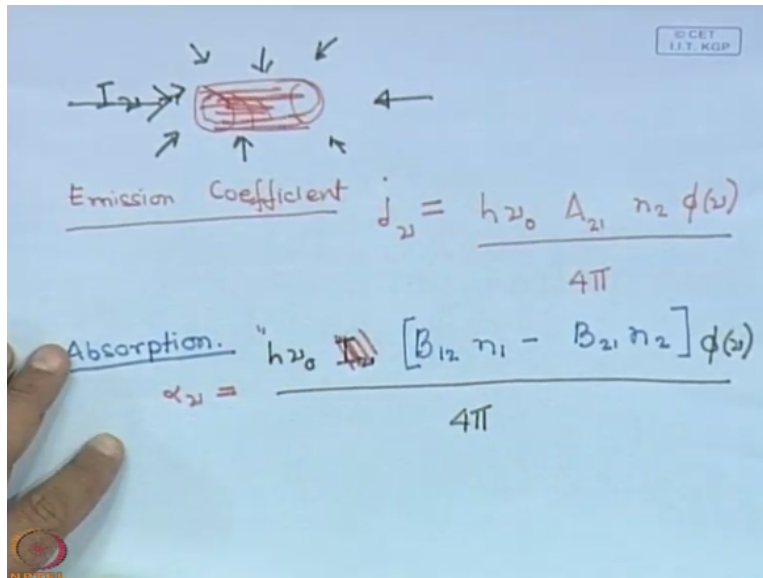 © CET
I.I.T. KGP
I_ν
Emission Coefficient j_ν = hν₀ A₂₁ n₂ φ(ν)
4π
Absorption. "hν₀ [B₁₂ n₁ - B₂₁ n₂] φ(ν)
α_ν =
4π
NPTEL